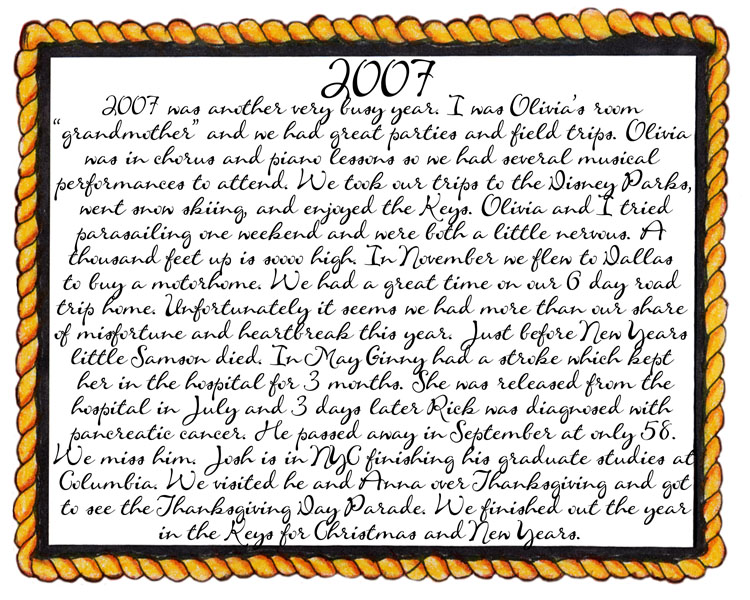 2007
2007 was another very busy year. I was Olivia's room
"grandmother" and we had great parties and field trips. Olivia
was in chorus and piano lessons so we had several musical
performances to attend. We took our trips to the Disney Parks,
went snow skiing, and enjoyed the Keys. Olivia and I tried
parasailing one weekend and were both a little nervous. A
thousand feet up is soooo high. In November we flew to Dallas
to buy a motorhome. We had a great time on our 6 day road
trip home. Unfortunately it seems we had more than our share
of misfortune and heartbreak this year. Just before New Years
little Samson died. In May Ginny had a stroke which kept
her in the hospital for 3 months. She was released from the
hospital in July and 3 days later Rick was diagnosed with
pancreatic cancer. He passed away in September at only 58.
We miss him. Josh is in NYC finishing his graduate studies at
Columbia. We visited he and Anna over Thanksgiving and got
to see the Thanksgiving Day Parade. We finished out the year
in the Keys for Christmas and New Years.